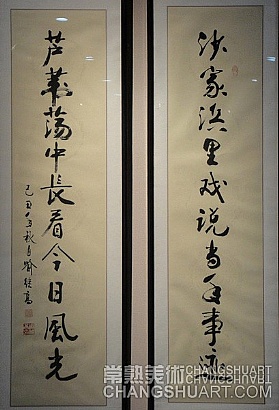 沙家浜里戏说当年事迹
芦苇荡中長看今日風光
己丑年秋月
常熟美術
CHANGSHUART.COM